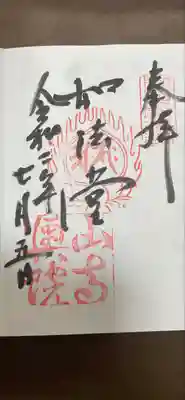 奉拝
如法堂
山寺
奥院
令和二年
七月五日